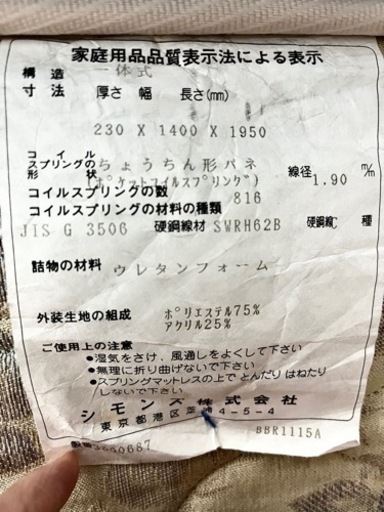 家庭用品品質表示法による表示
構造 一体式
寸法 厚さ 幅 長さ(mm)
230 X 1400 X 1950
コイルスプリングの形状 ちょうちん形バネ (ポケットコイルスプリング) 線径 1.90 m/m
コイルスプリングの数 816
コイルスプリングの材料の種類
JIS G 3506 硬鋼線材 SWRH62B 硬鋼線 種
詰物の材料 ウレタンフォーム
外装生地の組成 ポリエステル75%
アクリル25%
ご使用上の注意
●湿気をさけ、風通しをよくして下さい
●無理に折り曲げないで下さい
●スプリングマットレスの上でとんだり はねたり
しないで下さい
シモンズ株式会社
東京都港区芝 4-5-4
BBR1115A